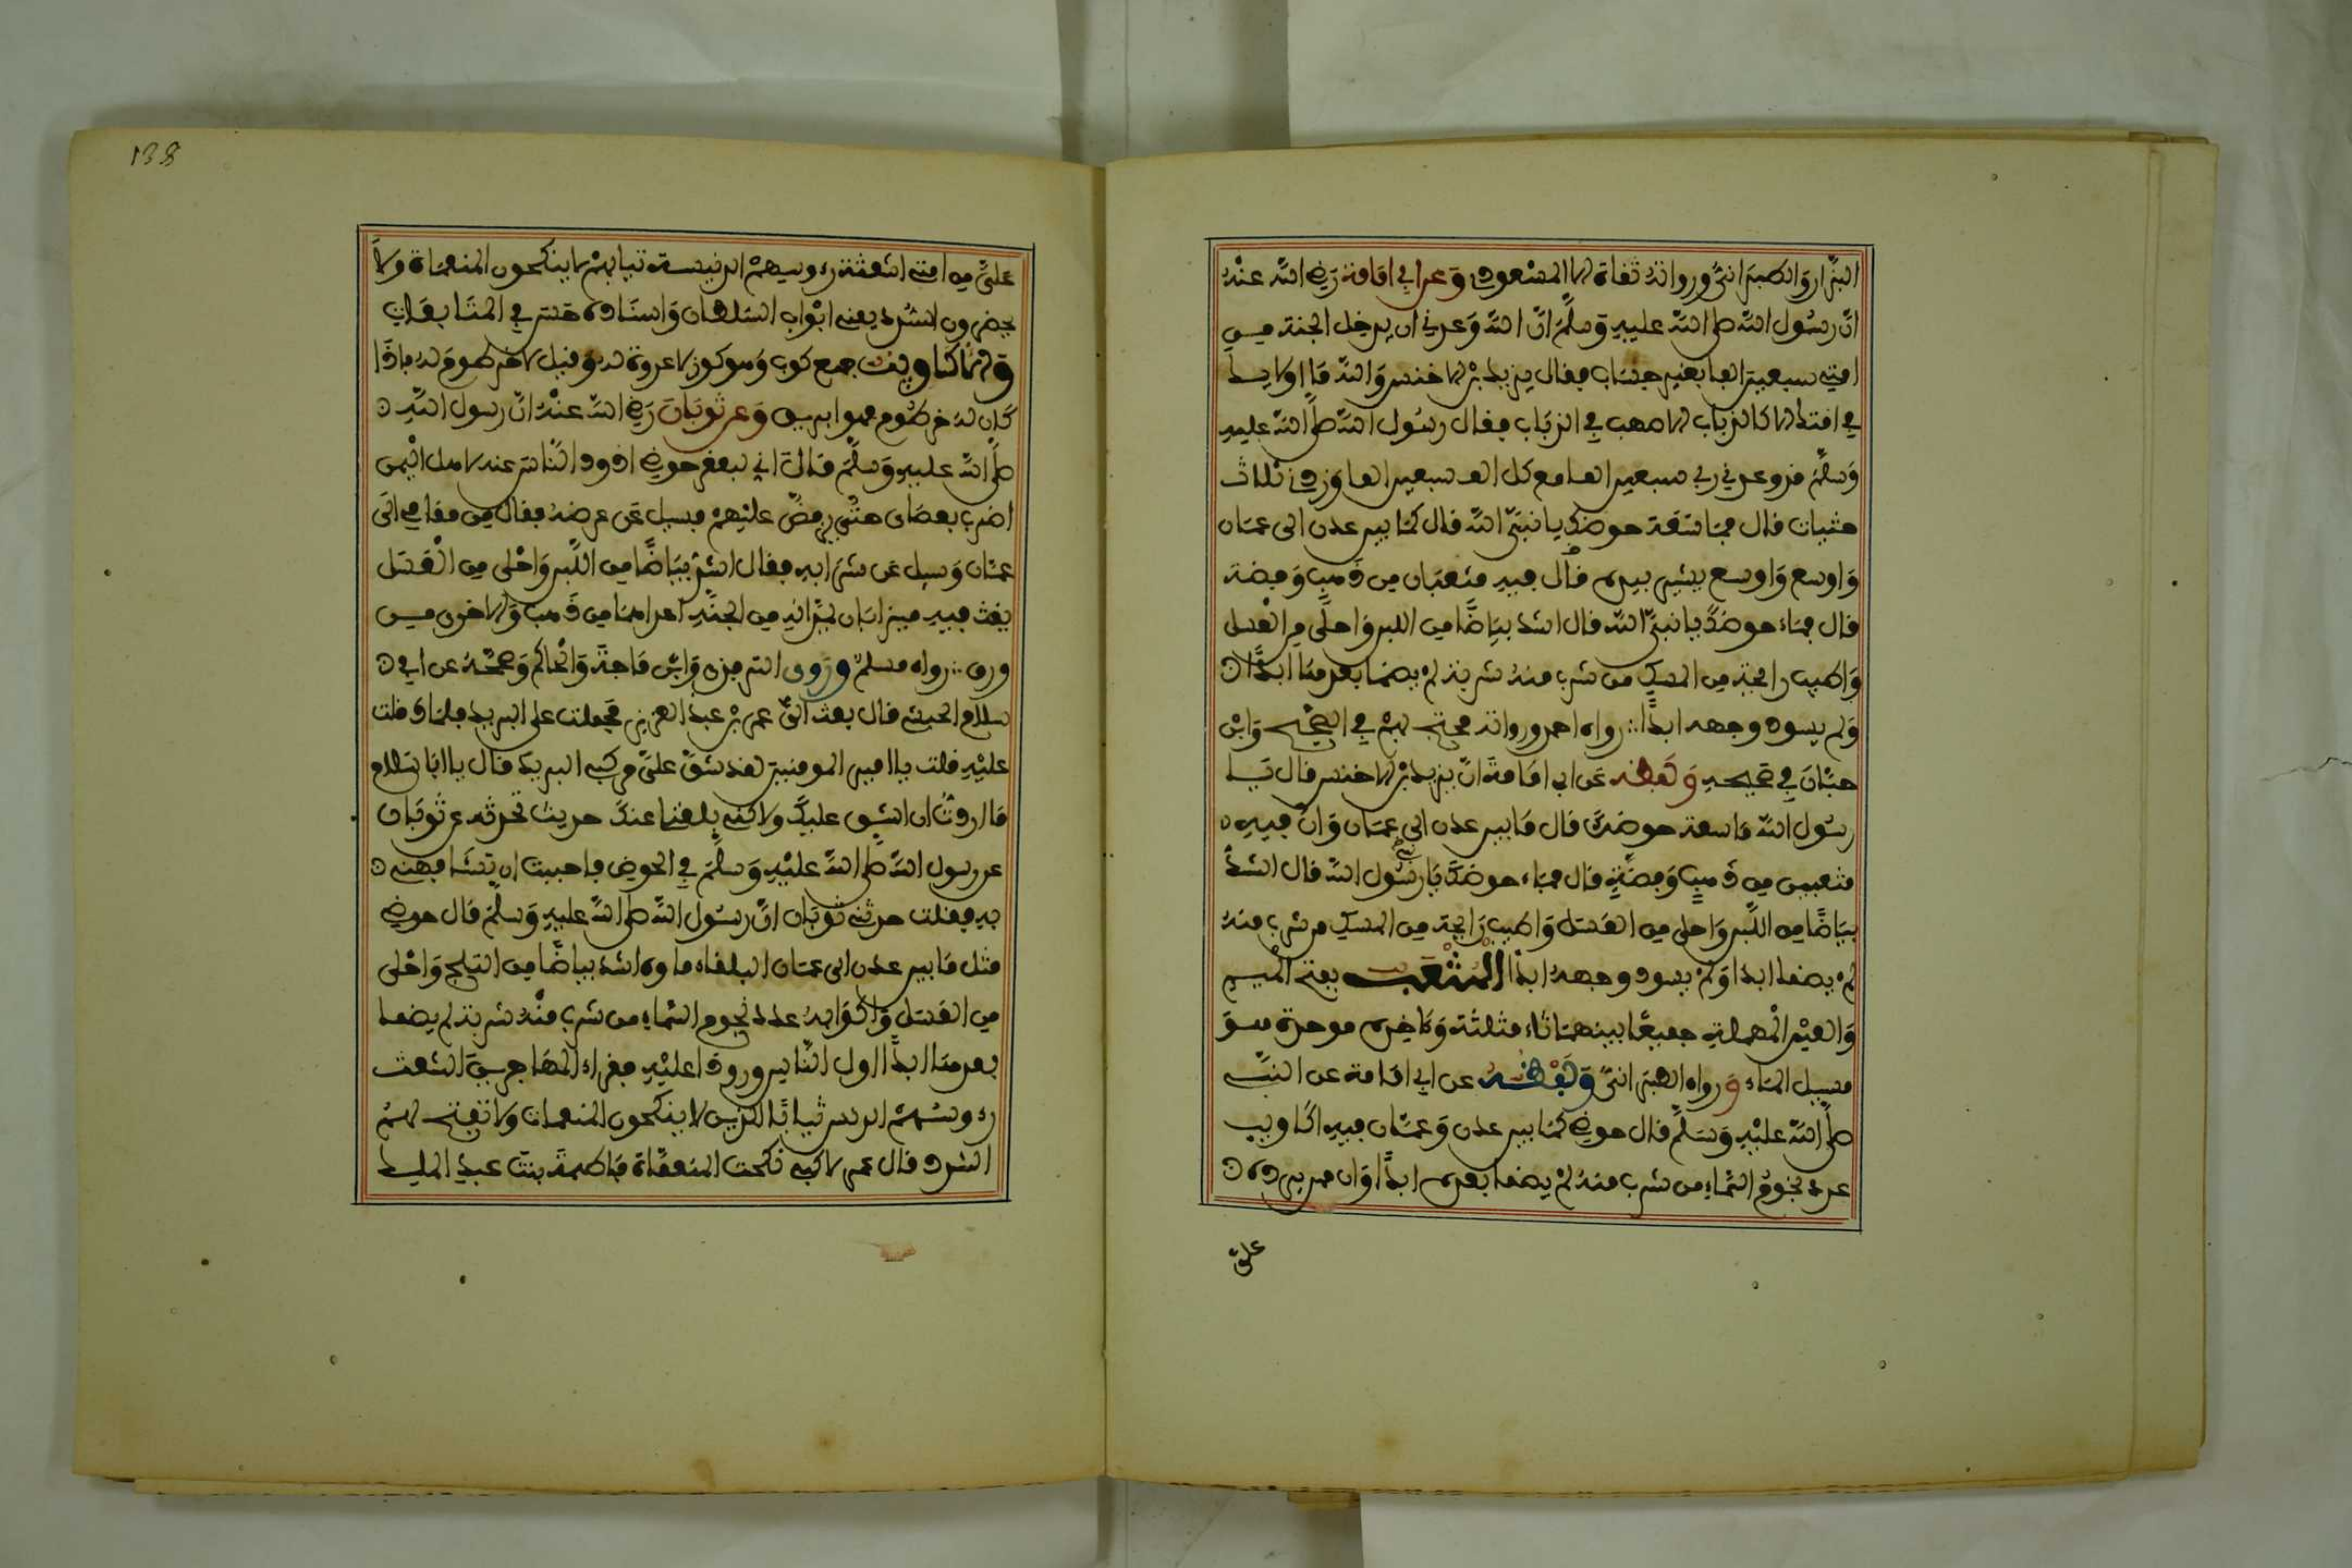 البزار والطبراني ورواته ثقاة الا المسعودي وعن ابي امامة رضي الله عنه
ان رسول الله صلى الله عليه وسلم ان الله وعدني ان يدخل الجنة من
امتي سبعين الفا بغير حساب فقال يزيد بن الاخنس والله ما اولايك
في امتك الا كالذباب الاصهب في الذباب فقال رسول الله صلى الله عليه
وسلم قد وعدني ربي سبعين الفا مع كل الف سبعين الفا وزادني ثلاث
حثيات قال فما سعة حوضك يا نبي الله قال كما بين عدن الى عمان
واوسع واوسع يشير بيده قال فيه مثعبان من ذهب وفضة
قال فماء حوضك يا نبي الله قال اشد بياضا من اللبن واحلى من العسل
واطيب رائحة من المسك من شرب منه شربة لم يضما بعدها ابدا
ولم يسود وجهه ابدا رواه احمد ورواته محتج بهم في الصحيح وابن
حبان في صحيحه ولفظه عن ابي امامة ان يزيد بن الاخنس قال يا
رسول الله ما سعة حوضك قال ما بين عدن الى عمان وان فيه
مثعبين من ذهب وفضة قال فماء حوضك يا رسول الله قال اشد
بياضا من اللبن واحلى من العسل واطيب رائحة من المسك من شرب منه
لم يضما ابدا ولم يسود وجهه ابدا المثعب بفتح الميم
والعين المهملة جميعا بينهما ثاء مثلثة وءاخره موحدة هو
مسيل الماء ورواه الطبراني ولفظه عن ابي امامة عن النبي
صلى الله عليه وسلم قال حوضي كما بين عدن وعمان فيه اكاويب
عدد نجوم السماء من شرب منه لم يضما بعده ابدا وان ممن يرده
علي
138
علي من امتي الشعثة رءوسهم الدنسة ثيابهم لا ينكحون المنعمات ولا
يحضرون السدد يعني ابواب السلطان واسناده حسن في المتابعات
والاكاويب جمع كوب وهو كوز لا عروة له وقيل لا خرطوم له فاذا
كان له خرطوم فهو ابريق وعن ثوبان رضي الله عنه ان رسول الله
صلى الله عليه وسلم قال اني لبعقر حوضي اذود الناس عنه لاهل اليمن
اضرب بعصاي حتى يرفض عليهم فسيل عن عرضه فقال من مقامي الى
عمان وسيل عن شرابه فقال اشد بياضا من اللبن واحلى من العسل
يغث فيه ميزابان يمدانه من الجنة احدهما من ذهب والاخر من
ورق رواه مسلم وروى الترمذي وابن ماجة والحاكم وصححه عن ابي
سلام الحبشي قال بعث الي عمر بن عبد العزيز فحملت على البريد فلما دخلت
عليه قلت يا امير المومنين لقد شق علي مركبي البريد فقال يا ابا سلام
ما اردت ان اشق عليك ولاكن بلغني عنك حديث تحدثه عن ثوبان
عن رسول الله صلى الله عليه وسلم في الحوض فاحببت ان تشافهني
به فقلت حدثني ثوبان ان رسول الله صلى الله عليه وسلم قال حوضي
مثل ما بين عدن الى عمان البلقاء ماوه اشد بياضا من الثلج واحلى
من العسل واكوابه عدد نجوم السماء من شرب منه شربة لم يضما
بعدها ابدا اول الناس ورودا عليه فقراء المهاجرين الشعث
رءوسهم الدنس ثيابا الذين لا ينكحون المنعمات ولا تفتح لهم
السدد قال عمر لاكني نكحت المنعمات فاطمة بنت عبد الملك